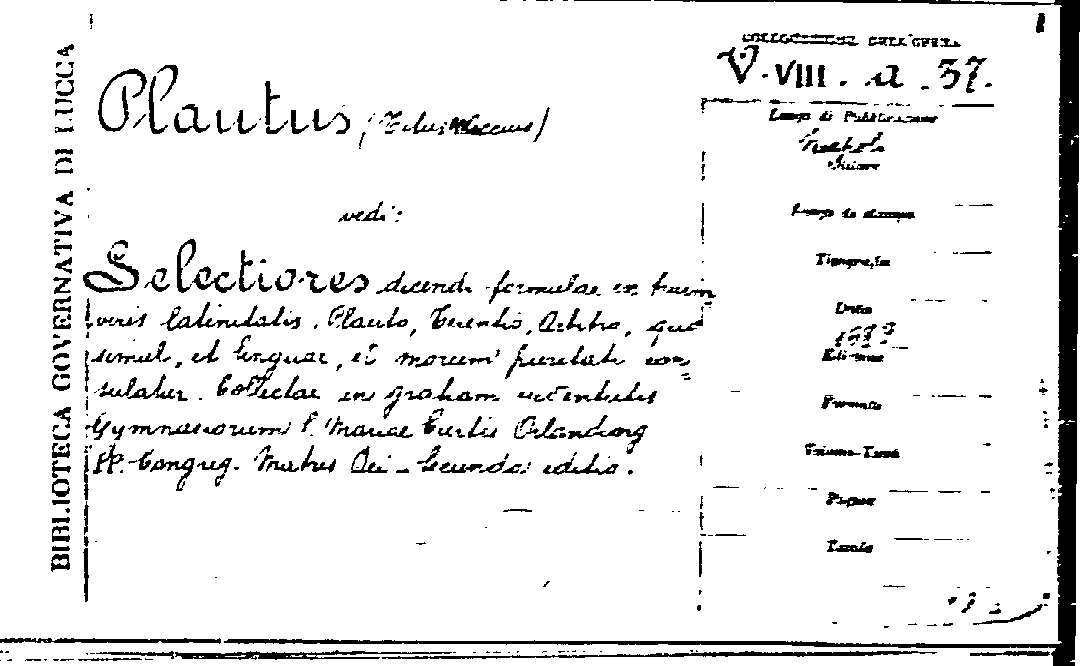 BIBLIOTECA GOVERNATIVA DI LUCCA
COLLOCAZIONE DELL'OPERA
V. VIII. a. 37.
Plautus (Titus Maccius)
vedi:
Selectiores dicendi formulae in trium
viris latinitatis. Plauto, Terentio, Arbitro, quo
simul, et linguae, et morum puritati con
sulatur. Collectae in gratiam
Gymnasiorum S. Mariae Curtis Orlanding
PP. Congreg. Matris Dei - Secunda editio.
Luogo di Pubblicazione
Luogo di stampa
Tipografia
Data
Edizione
Formato
Volume-Tomo
Pagine
Tavole